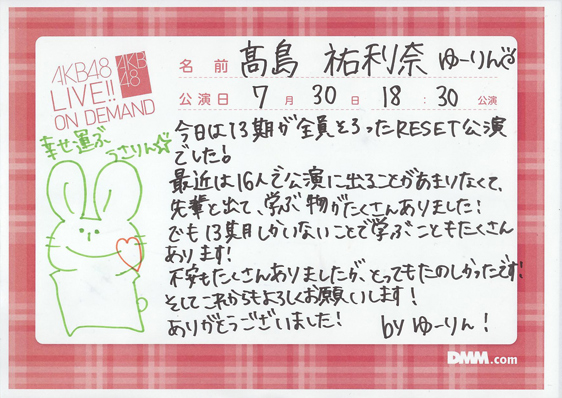 AKB48
LIVE!!
ON DEMAND
AKB
48
名前 髙島 祐利奈 ゆーりん
公演日 7月30日 18:30公演
幸せ運ぶ
うさりん☆
今日は13期が全員そろったRESET公演
でした!
最近は16人で公演に出ることがあまりなくて、
先輩と出て、学ぶ物がたくさんありました!
でも13期しかいないことで学ぶこともたくさん
あります!
不安もたくさんありましたが、とってもたのしかったです!
そしてこれからもよろしくお願いします!
ありがとうございました!
by ゆーりん!
DMM.com